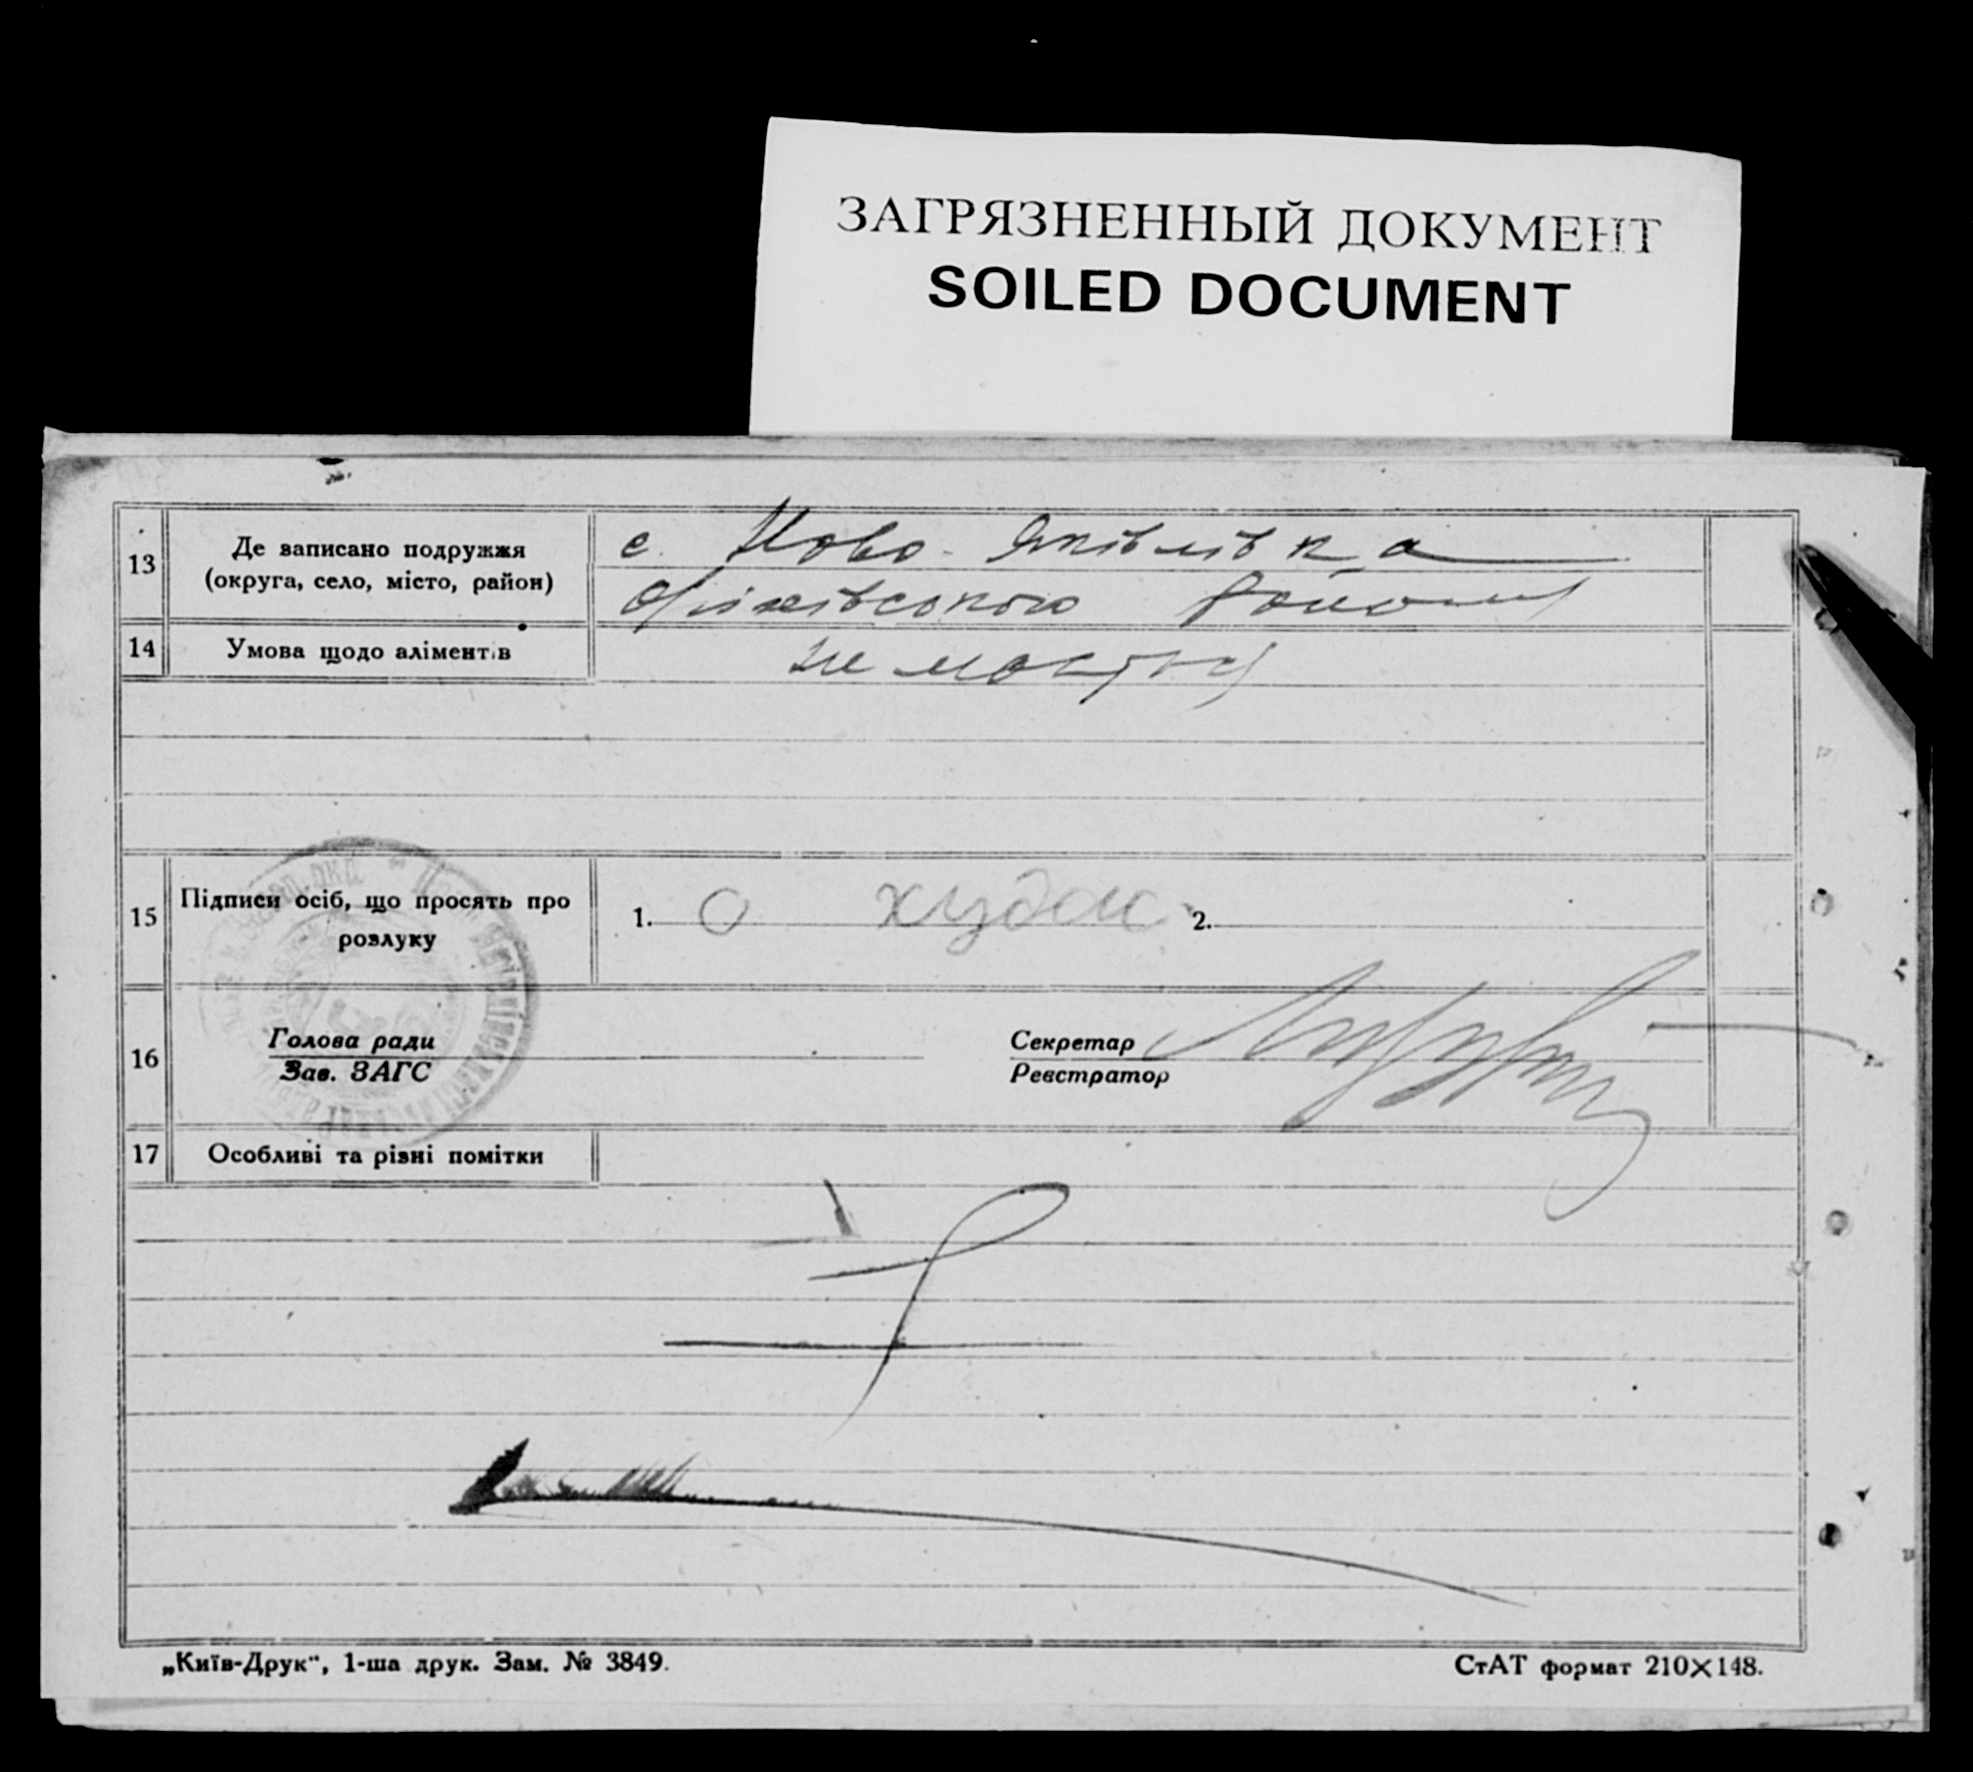 ЗАГРЯЗНЕННЫЙ ДОКУМЕНТ
SOILED DOCUMENT
13
Де записано подружжя
(округа, село, місто, район)
с. Ново-Яківлівка
Оріхівського району
14
Умова щодо аліментів
не мається
15
Підписи осіб, що просять про
розлуку
1. О худок 2.
16
Голова ради
Зав. ЗАГС
Секретар
Реєстратор
17
Особливі та різні помітки
„Київ-Друк“, 1-ша друк. Зам. № 3849.
СтАТ формат 210×148.